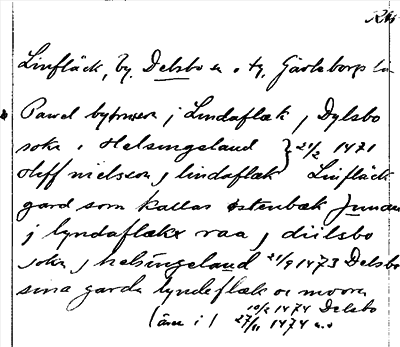 Linfläck, by, Delsbo sn o tg, Gävleborgs län
Pawel bytmwen j Lindaflæk, j Dylsbo
sokn i Helsingeland } 21/2 1471
Oleff nielsson j lindaflæk Linfläck
gard som kallas østenbæk
j lyndaflækx raa j diilsbo
sokn j helsingeland 21/9 1473 Delsbo
sina garda lyndeflæk oc moora
10/2 1474 Delsbo
(äm i) 27/11 1474